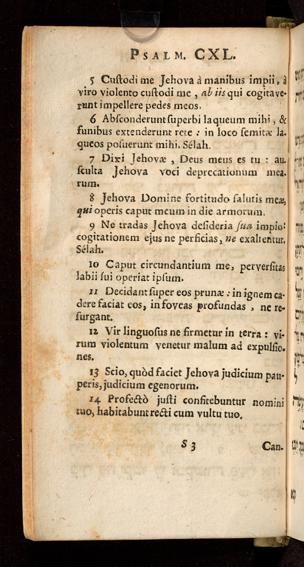 PSALM. CXL.
5 Custodi me Jehova à manibus impii, à
viro violento custodi me, ab iis qui cogitave-
runt impellere pedes meos.
6 Absconderunt superbi laqueum mihi, &
funibus extenderunt rete: in loco semitæ la-
queos posuerunt mihi. Sélah.
7 Dixi Jehovæ, Deus meus es tu: au-
sculta Jehova voci deprecationum mea-
rum.
8 Jehova Domine fortitudo salutis meæ,
qui operis caput meum in die armorum.
9 Ne tradas Jehova desideria sua impio:
cogitationem ejus ne perficias, ne exaltentur.
Sélah.
10 Caput circundantium me, perversitas
labii sui operiat ipsum.
11 Decidant super eos prunæ: in ignem ca-
dere faciat eos, in foveas profundas, ne re-
surgant.
12 Vir linguosus ne firmetur in terra: vi-
rum violentum venetur malum ad expulsio-
nes.
13 Scio, quòd faciet Jehova judicium pau-
peris, judicium egenorum.
14 Profectò justi confitebuntur nomini
tuo, habitabunt recti cum vultu tuo.
S 3 Can.